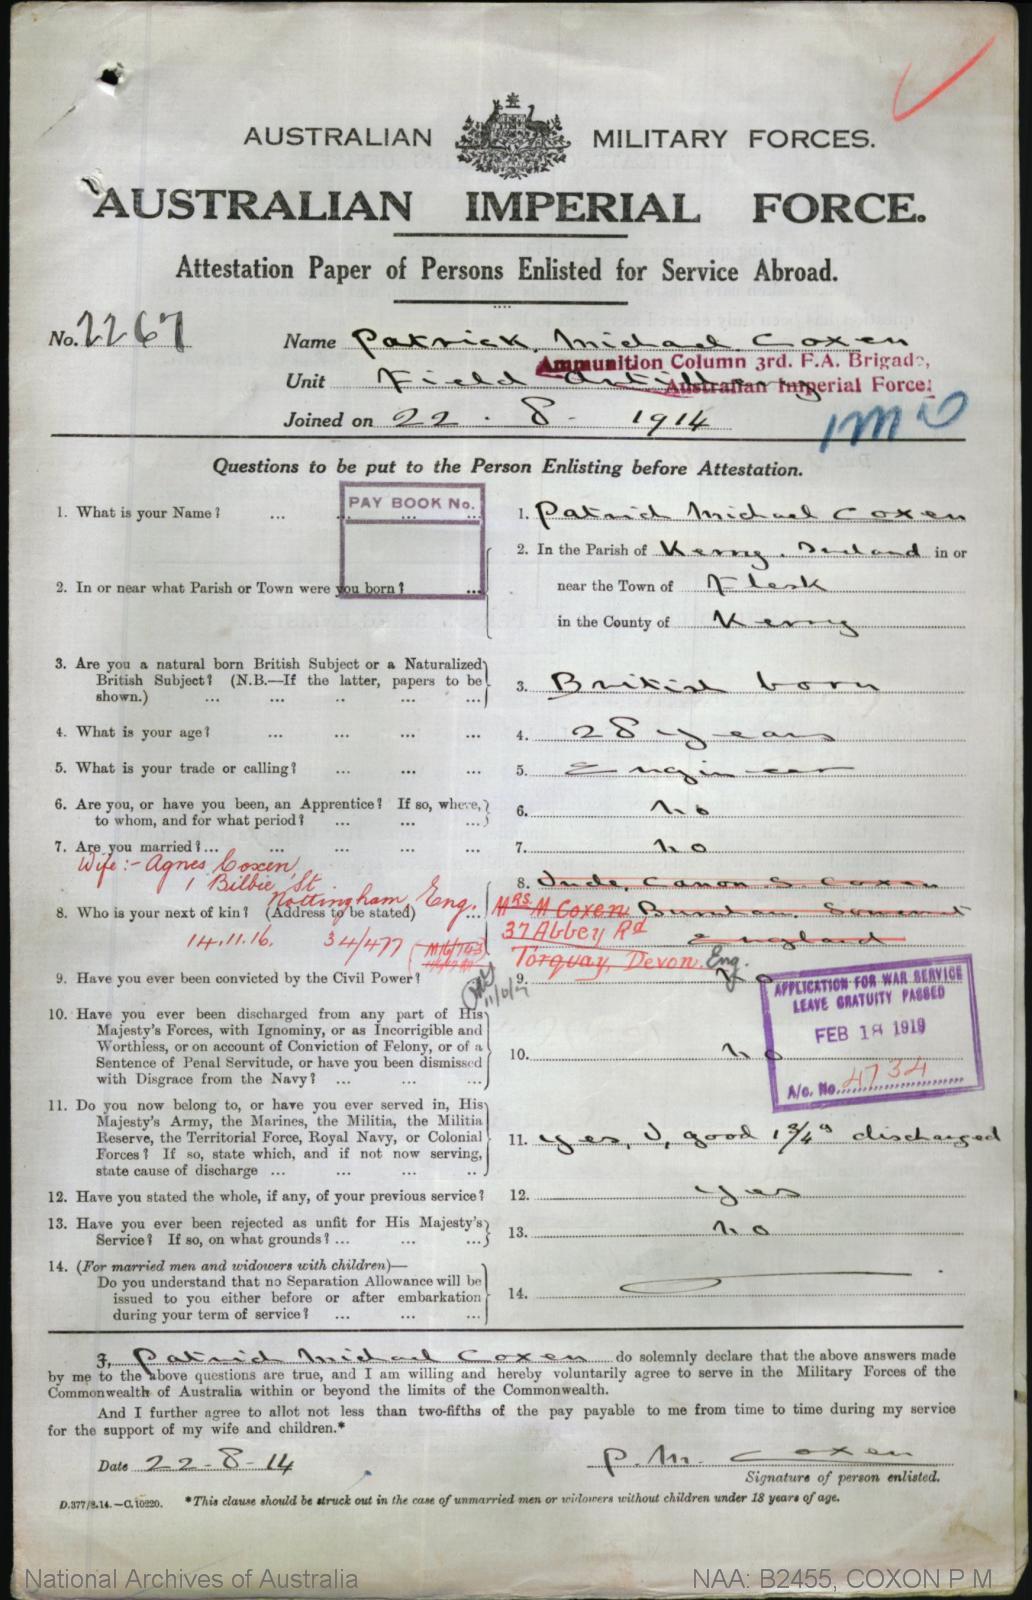 AUSTRALIAN MILITARY FORCES.
AUSTRALIAN IMPERIAL FORCE.
Attestation Paper of Persons Enlisted for Service Abroad.
No. 2267
Name Patrick Michael Coxen
Ammunition Column 3rd. F.A. Brigade,
Unit Field Artillery
Australian Imperial Force.
Joined on 22 . 8 . 1914
Questions to be put to the Person Enlisting before Attestation.
PAY BOOK No.
1. What is your Name? ... ... ... ... 1. Patrick Michael Coxen
2. In or near what Parish or Town were you born? ... 2. In the Parish of Kerry. Ireland in or
near the Town of Flesk
in the County of Kerry
3. Are you a natural born British Subject or a Naturalized
British Subject? (N.B.—If the latter, papers to be
shown.) ... ... .. ... ... 3. British born
4. What is your age? ... ... ... ... 4. 28 years
5. What is your trade or calling? ... ... ... 5. Engineer
6. Are you, or have you been, an Apprentice? If so, where,
to whom, and for what period? ... ... ... 6. no
7. Are you married? ... ... ... ... ... 7. no
Wife :- Agnes Coxen
1 Bilbie St
Nottingham Eng.
8. Who is your next of kin? (Address to be stated) ... 8. Canon S. Coxen
Mrs M Coxen Burnham. Somerset
37 Abbey Rd England
Torquay, Devon. Eng.
14.11.16. 34/477
9. Have you ever been convicted by the Civil Power? 9. no
APPLICATION FOR WAR SERVICE
LEAVE GRATUITY PASSED
FEB 18 1919
A/c. No. 4734
10. Have you ever been discharged from any part of His
Majesty's Forces, with Ignominy, or as Incorrigible and
Worthless, or on account of Conviction of Felony, or of a
Sentence of Penal Servitude, or have you been dismissed
with Disgrace from the Navy? ... ... ... 10. no
11. Do you now belong to, or have you ever served in, His
Majesty's Army, the Marines, the Militia, the Militia
Reserve, the Territorial Force, Royal Navy, or Colonial
Forces? If so, state which, and if not now serving,
state cause of discharge ... ... ... .. 11. yes, good discharged
12. Have you stated the whole, if any, of your previous service? 12. yes
13. Have you ever been rejected as unfit for His Majesty's
Service? If so, on what grounds? ... ... ... 13. no
14. (For married men and widowers with children)—
Do you understand that no Separation Allowance will be
issued to you either before or after embarkation
during your term of service? ... ... ... 14.
I, Patrick Michael Coxen do solemnly declare that the above answers made
by me to the above questions are true, and I am willing and hereby voluntarily agree to serve in the Military Forces of the
Commonwealth of Australia within or beyond the limits of the Commonwealth.
And I further agree to allot not less than two-fifths of the pay payable to me from time to time during my service
for the support of my wife and children.*
Date 22-8-14 P. M. Coxen
Signature of person enlisted.
D.377/8.14.—C.10220. *This clause should be struck out in the case of unmarried men or widowers without children under 18 years of age.
National Archives of Australia NAA: B2455, COXON P M